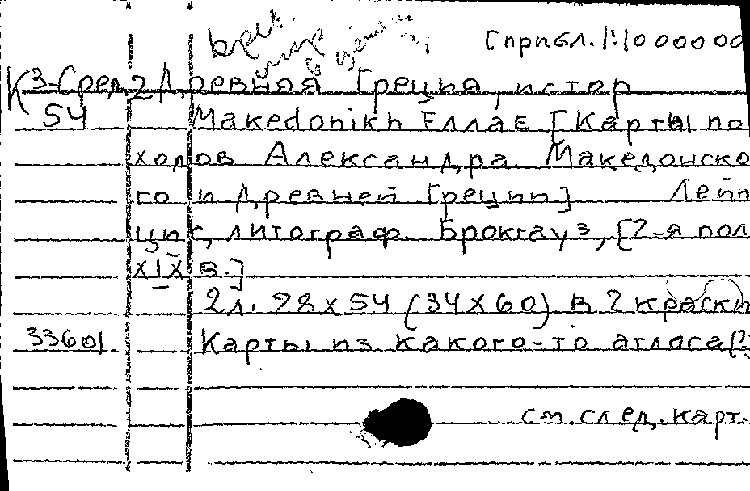 [прибл. 1:1000000
К 3-Сред. 2 Древняя Греция, истор
54 Makedonikh Ελλαε [Карты по
ходов Александра Македонско
го и древней Греции] Лейп
циг, литограф. Брокгауз, [2-я пол
XIX в.]
2 л. 28x54 (34x60) в 2 краски
33601 Карты из какого-то атласа(?)
см. след. карт.